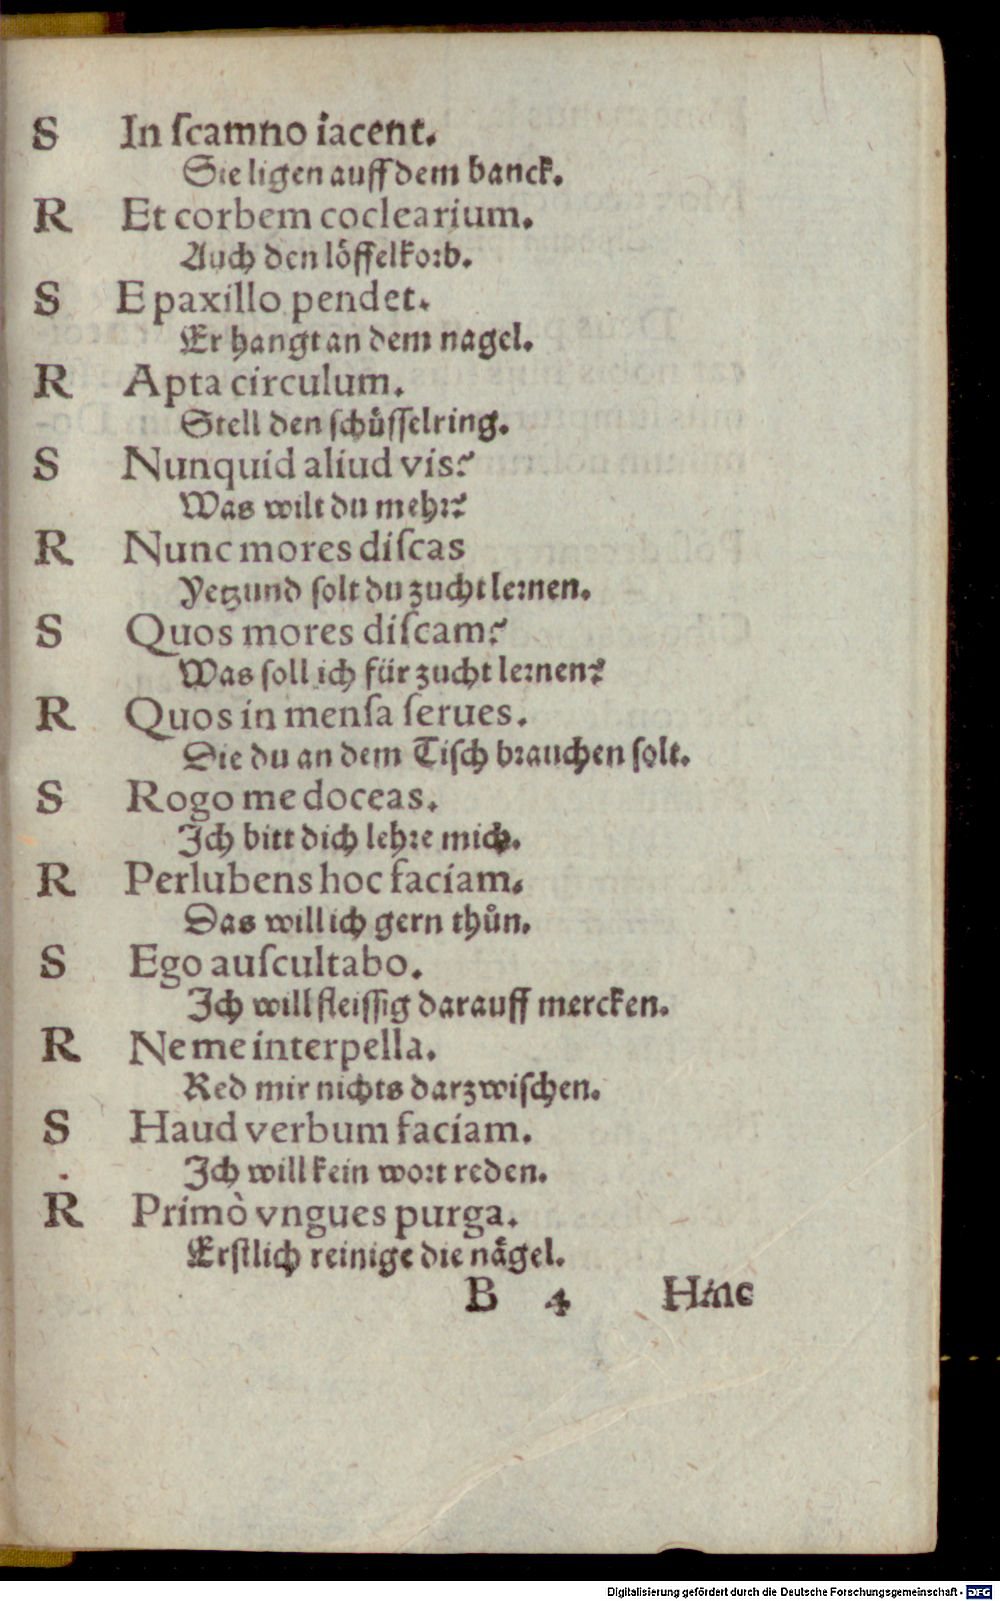 S In ſcamno iacent.
Sie ligen auff dem banck.
R Et corbem coclearium.
Auch den löffelkorb.
S E paxillo pendet.
Er hangt an dem nagel.
R Apta circulum.
Stell den ſchüſſelring.
S Nunquid aliud vis?
Was wilt du mehr?
R Nunc mores diſcas
Yetzund ſolt du zucht lernen.
S Quos mores diſcam?
Was ſoll ich für zucht lernen?
R Quos in menſa ſerues.
Die du an dem Tiſch brauchen ſolt.
S Rogo me doceas.
Ich bitt dich lehre mich.
R Perlubens hoc faciam.
Das will ich gern thůn.
S Ego auſcultabo.
Ich will fleiſſig darauff mercken.
R Ne me interpella.
Red mir nichts darzwiſchen.
S Haud verbum faciam.
Ich will kein wort reden.
R Primò vngues purga.
Erſtlich reinige die nägel.
B 4 Hinc
Digitalisierung gefördert durch die Deutsche Forschungsgemeinschaft - DFG